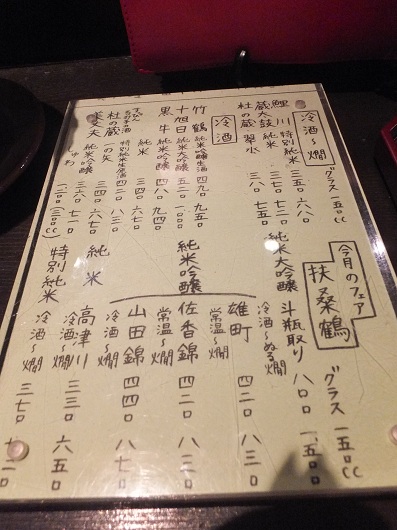 冷酒〜燗 グラス一五〇cc
鯉川 特別純米 三五〇 六八〇
蔵太鼓 純米 三七〇 七二〇
杜の蔵 翠水 三八〇 七五〇
冷酒
竹鶴 純米吟醸生酒 四九〇 九五〇
十旭日 純米大吟醸 五二〇 一〇〇〇
黒牛 純米吟醸 四八〇 九四〇
純米 三四〇
杜の蔵 特別純米生原酒 四二〇 八二〇
の矢 純米 三四〇 六七〇
美丈夫 純米吟醸 三六〇 七一〇
今月のフェア
扶桑鶴
グラス一五〇cc
純米大吟醸 斗瓶取り 冷酒〜ぬる燗 八〇〇 一五〇〇
純米吟醸
雄町 常温〜燗 四二〇 八二〇
佐香錦 常温〜燗 四二〇 八二〇
山田錦 冷酒〜燗 四四〇 八七〇
純米 高津川 冷酒〜燗 三三〇 六五〇
特別純米 冷酒〜燗 三七〇